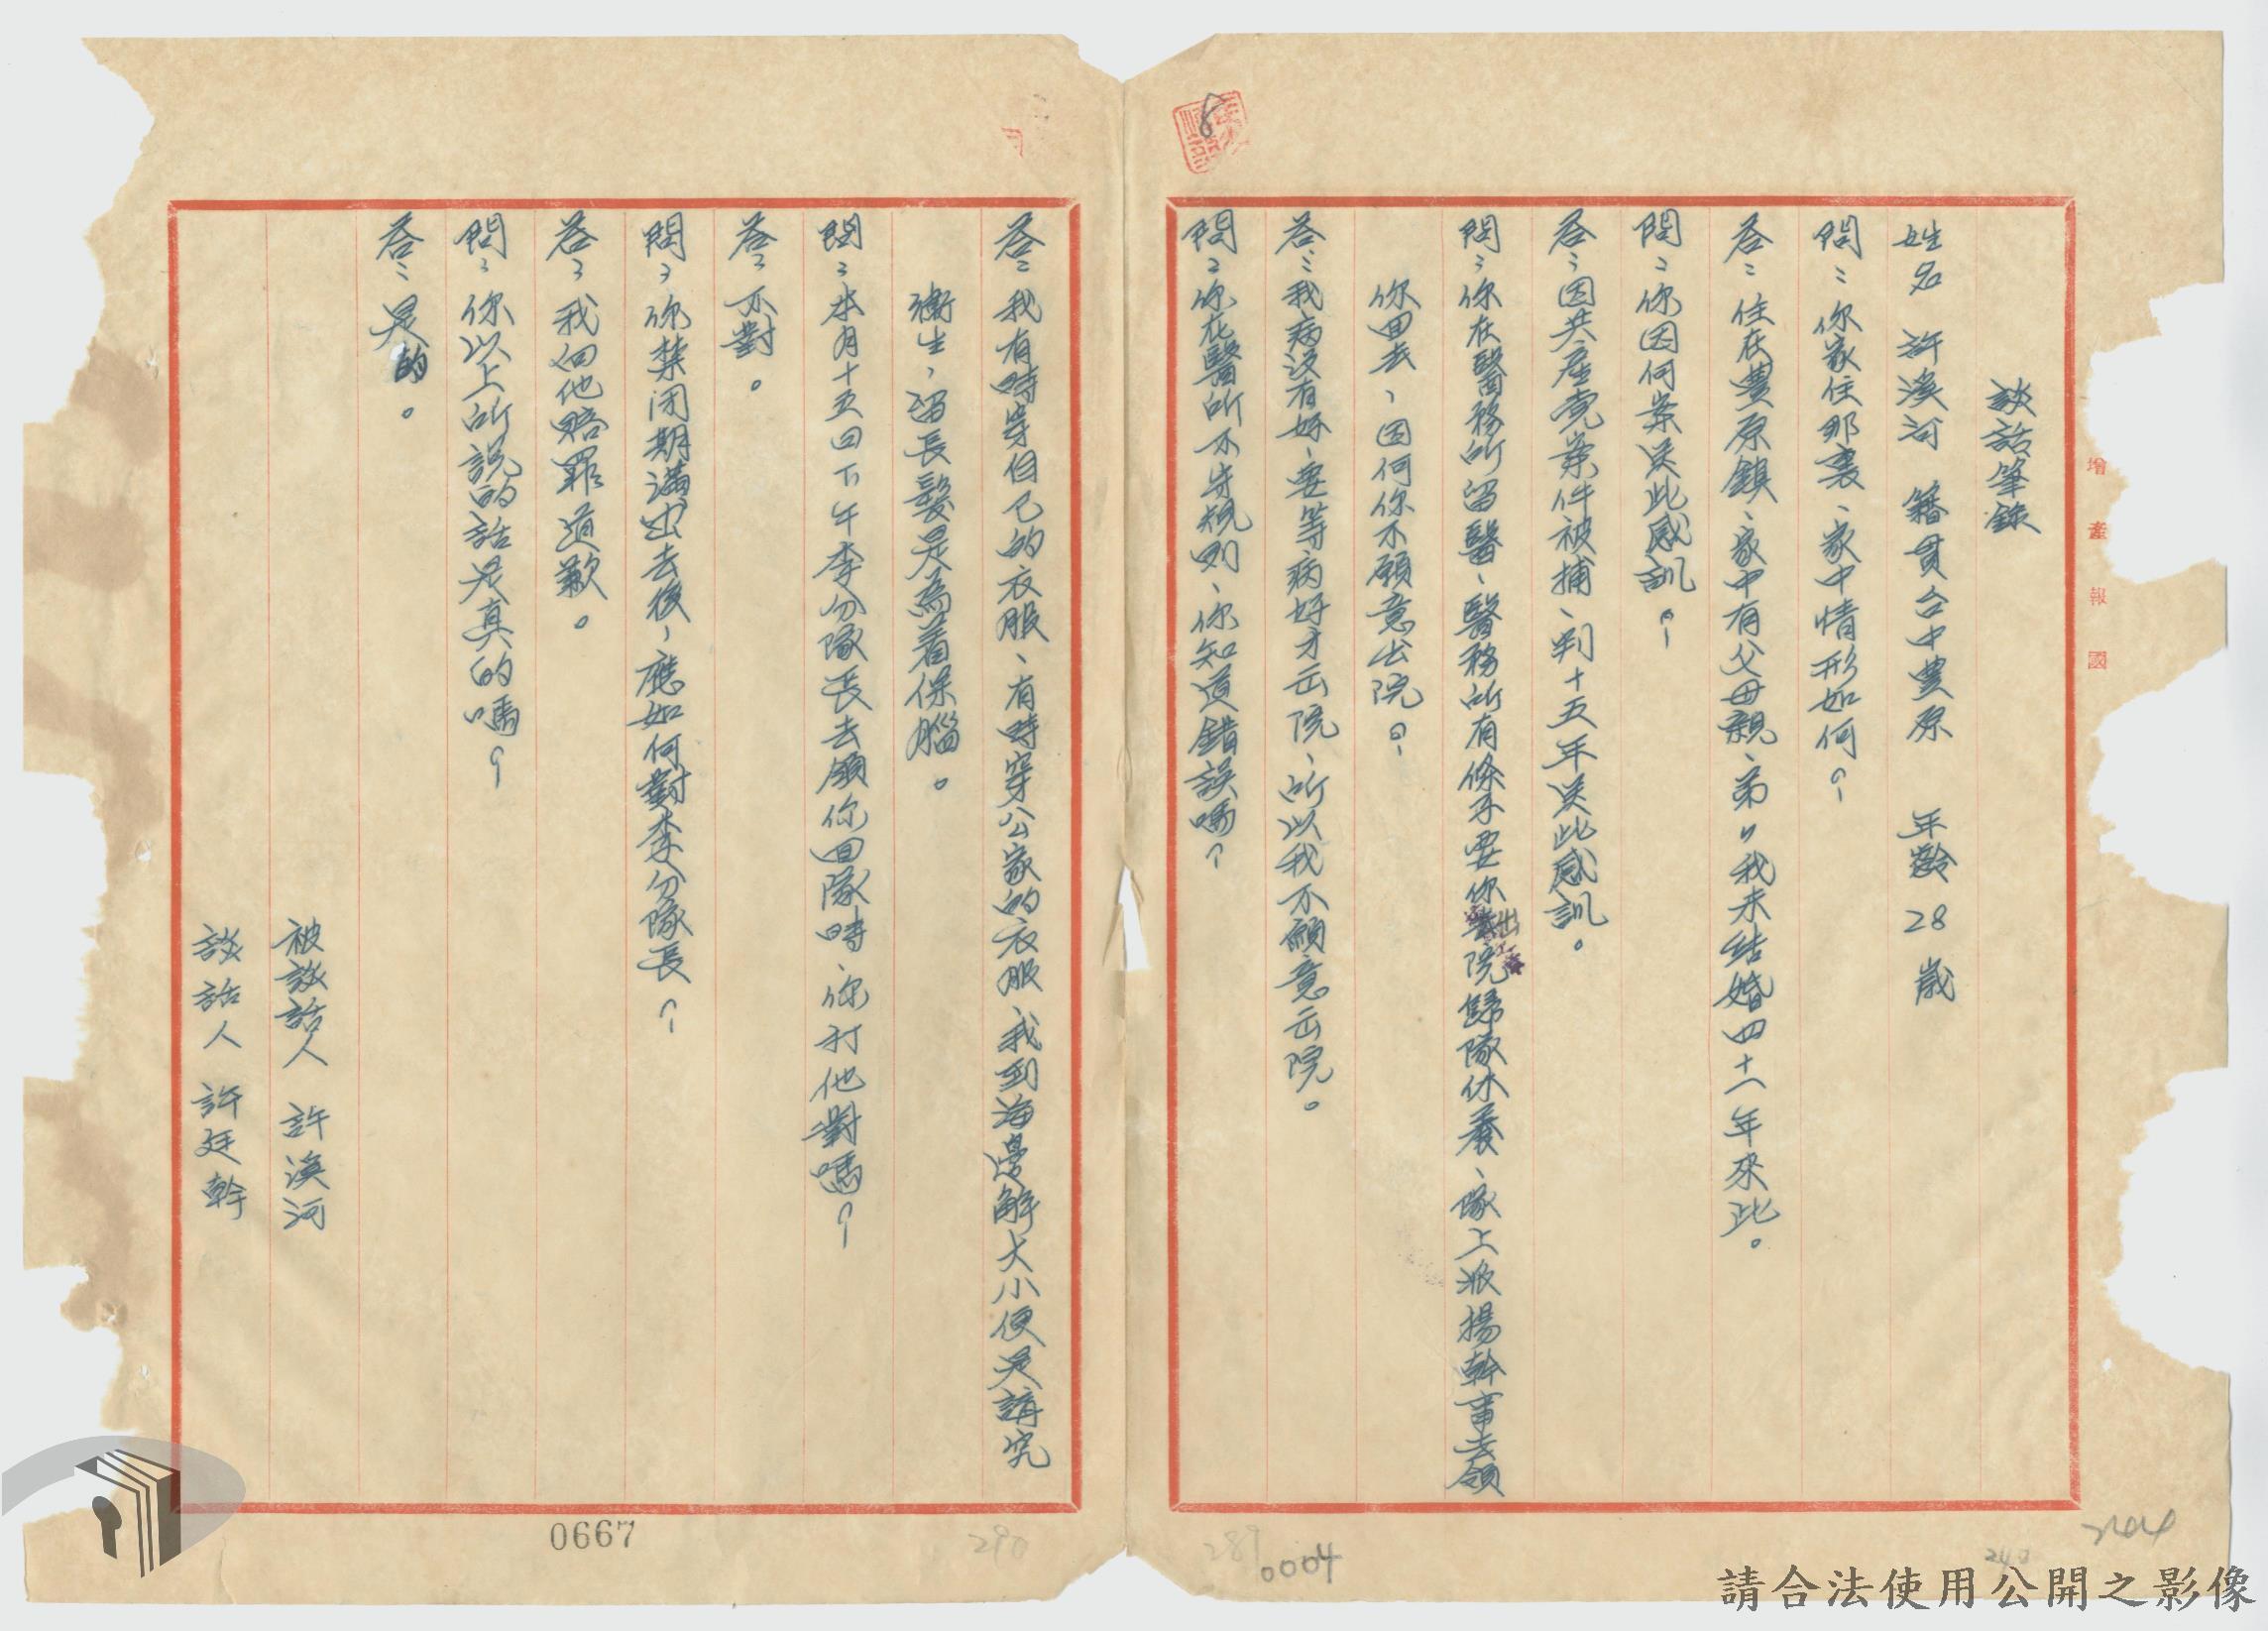 談話筆錄
姓名 許溪河 籍貫台中豐原 年齡28歲
問：你家住那裏、家中情形如何？
答：住在豐原鎮、家中有父母親、弟〃我未結婚四十一年來此。
問：你因何案送此感訓？
答：因共產党案件被捕、判十五年送此感訓。
問：你在醫務所留醫、醫務所有條子要你出院歸隊休養、隊上派楊幹事去領
你回去、因何你不願意出院？
答：我病沒有好、要等病好才出院、所以我不願意出院。
問：你在醫所不守規則、你知道錯誤嗎？
答：我有時穿自已的衣服、有時穿公家的衣服、我到海邊解大小便是講究
衛生，留長髮是為着保腦。
問：本月十五日下午李分隊長去領你回隊時、你打他對嗎？
答：不對。
問：你禁闭期滿出去後，應如何對李分隊長？
答：我向他賠罪道歉。
問：你以上所說的話是真的嗎？
答：是的。
被談話人 許溪河
談話人 許廷幹
增產報國
8
0667
290
289
0004
請合法使用公開之影像